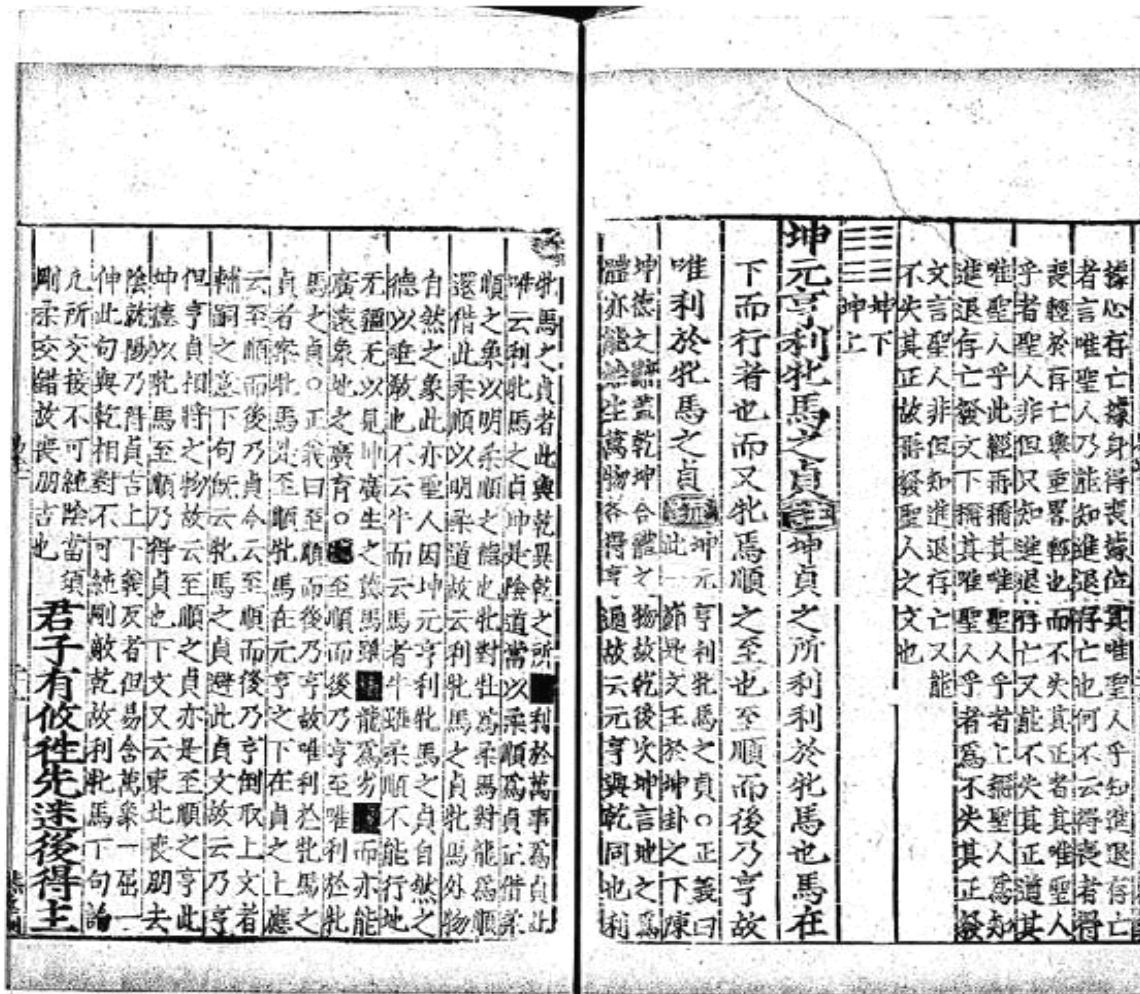 據心存亡據身得喪據位其唯聖人乎知進退存亡
者言唯聖人乃能知進退存亡也何不云得喪者得
喪輕於存亡舉重畧輕也而不失其正者其唯聖人
乎者聖人非但只知進退存亡又能不失其正道其
唯聖人乎此經再稱其唯聖人乎者上稱聖人爲知
進退存亡發文下稱其唯聖人乎者爲不失其正發
文言聖人非但知進退存亡又能
不失其正故發聖人之文也
䷁坤下
坤上
坤元亨利牝馬之貞注坤貞之所利利於牝馬也馬在
下而行者也而又牝焉順之至也至順而後乃亨故
唯利於牝馬之貞疏坤元亨利牝馬之貞○正義曰
此一節是文王於坤卦之下陳
坤德之辭蓋乾坤合體之物故乾後次坤言地之爲
體亦能始生萬物各得亨通故云元亨與乾同也利
牝馬之貞者此與乾異乾之所利於萬事爲貞此
唯云利牝馬之貞坤是陰道當以柔順爲貞正借柔
順之象以明柔順之德也牝對牡爲柔馬對龍爲順
還借此柔順以明柔道故云利牝馬之貞牝馬外物
自然之象此亦聖人因坤元亨利牝馬之貞自然之
德以垂敎也不云牛而云馬者牛雖柔順不能行地
无疆无以見坤廣生之德馬雖龍爲劣而亦能
廣遠象地之廣育○至順而後乃亨至唯利於牝
馬之貞○正義曰至順而後乃亨故唯利於牝馬之
貞者案牝馬是至順牝馬在元亨之下在貞之上應
云至順而後乃貞今云至順而後乃亨倒取上文者
輔嗣之意下句旣云牝馬之貞避此貞文故云乃亨
但亨貞相將之物故云至順之貞亦是至順之亨此
坤德以牝馬至順乃得貞也下文又云東北喪朋去
陰就陽乃得貞吉上下義反者但易含萬象一屈一
伸此句與乾相對不可純剛敵乾故利牝馬下句論
凡所交接不可純陰當須
剛柔交錯故喪朋吉也
君子有攸往先迷後得主